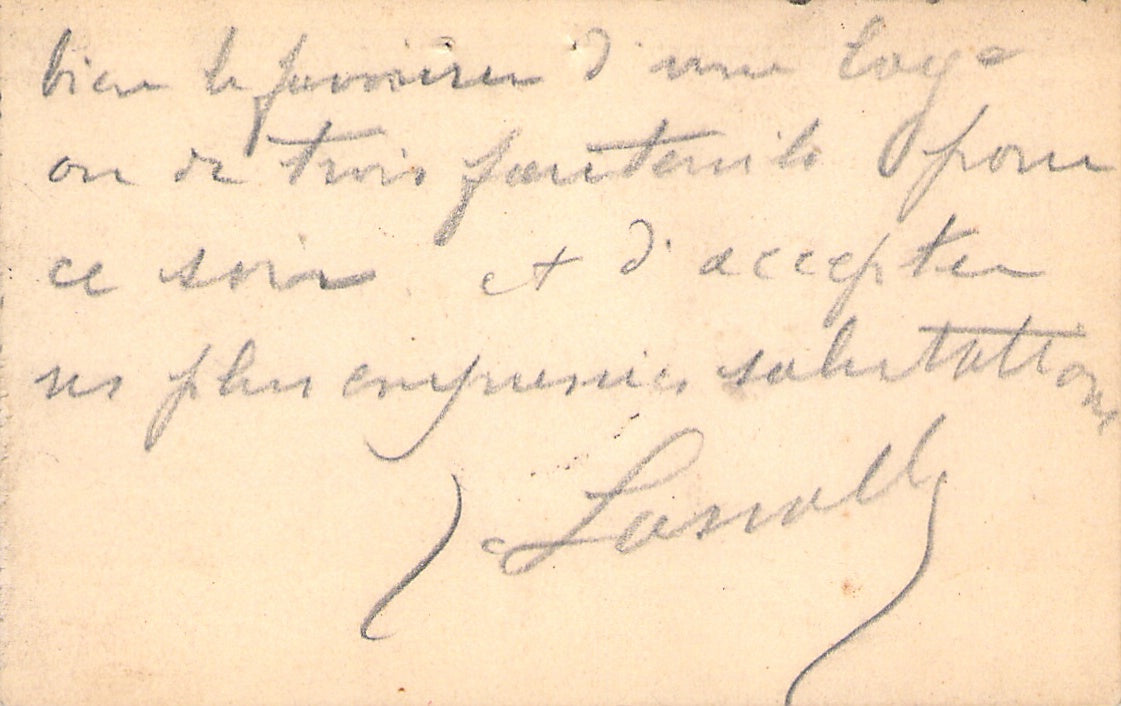 bien le favoriser d'une loge
ou de trois fauteuils pour
ce soir et d'accepter
ses plus empressées salutations
Lassalle